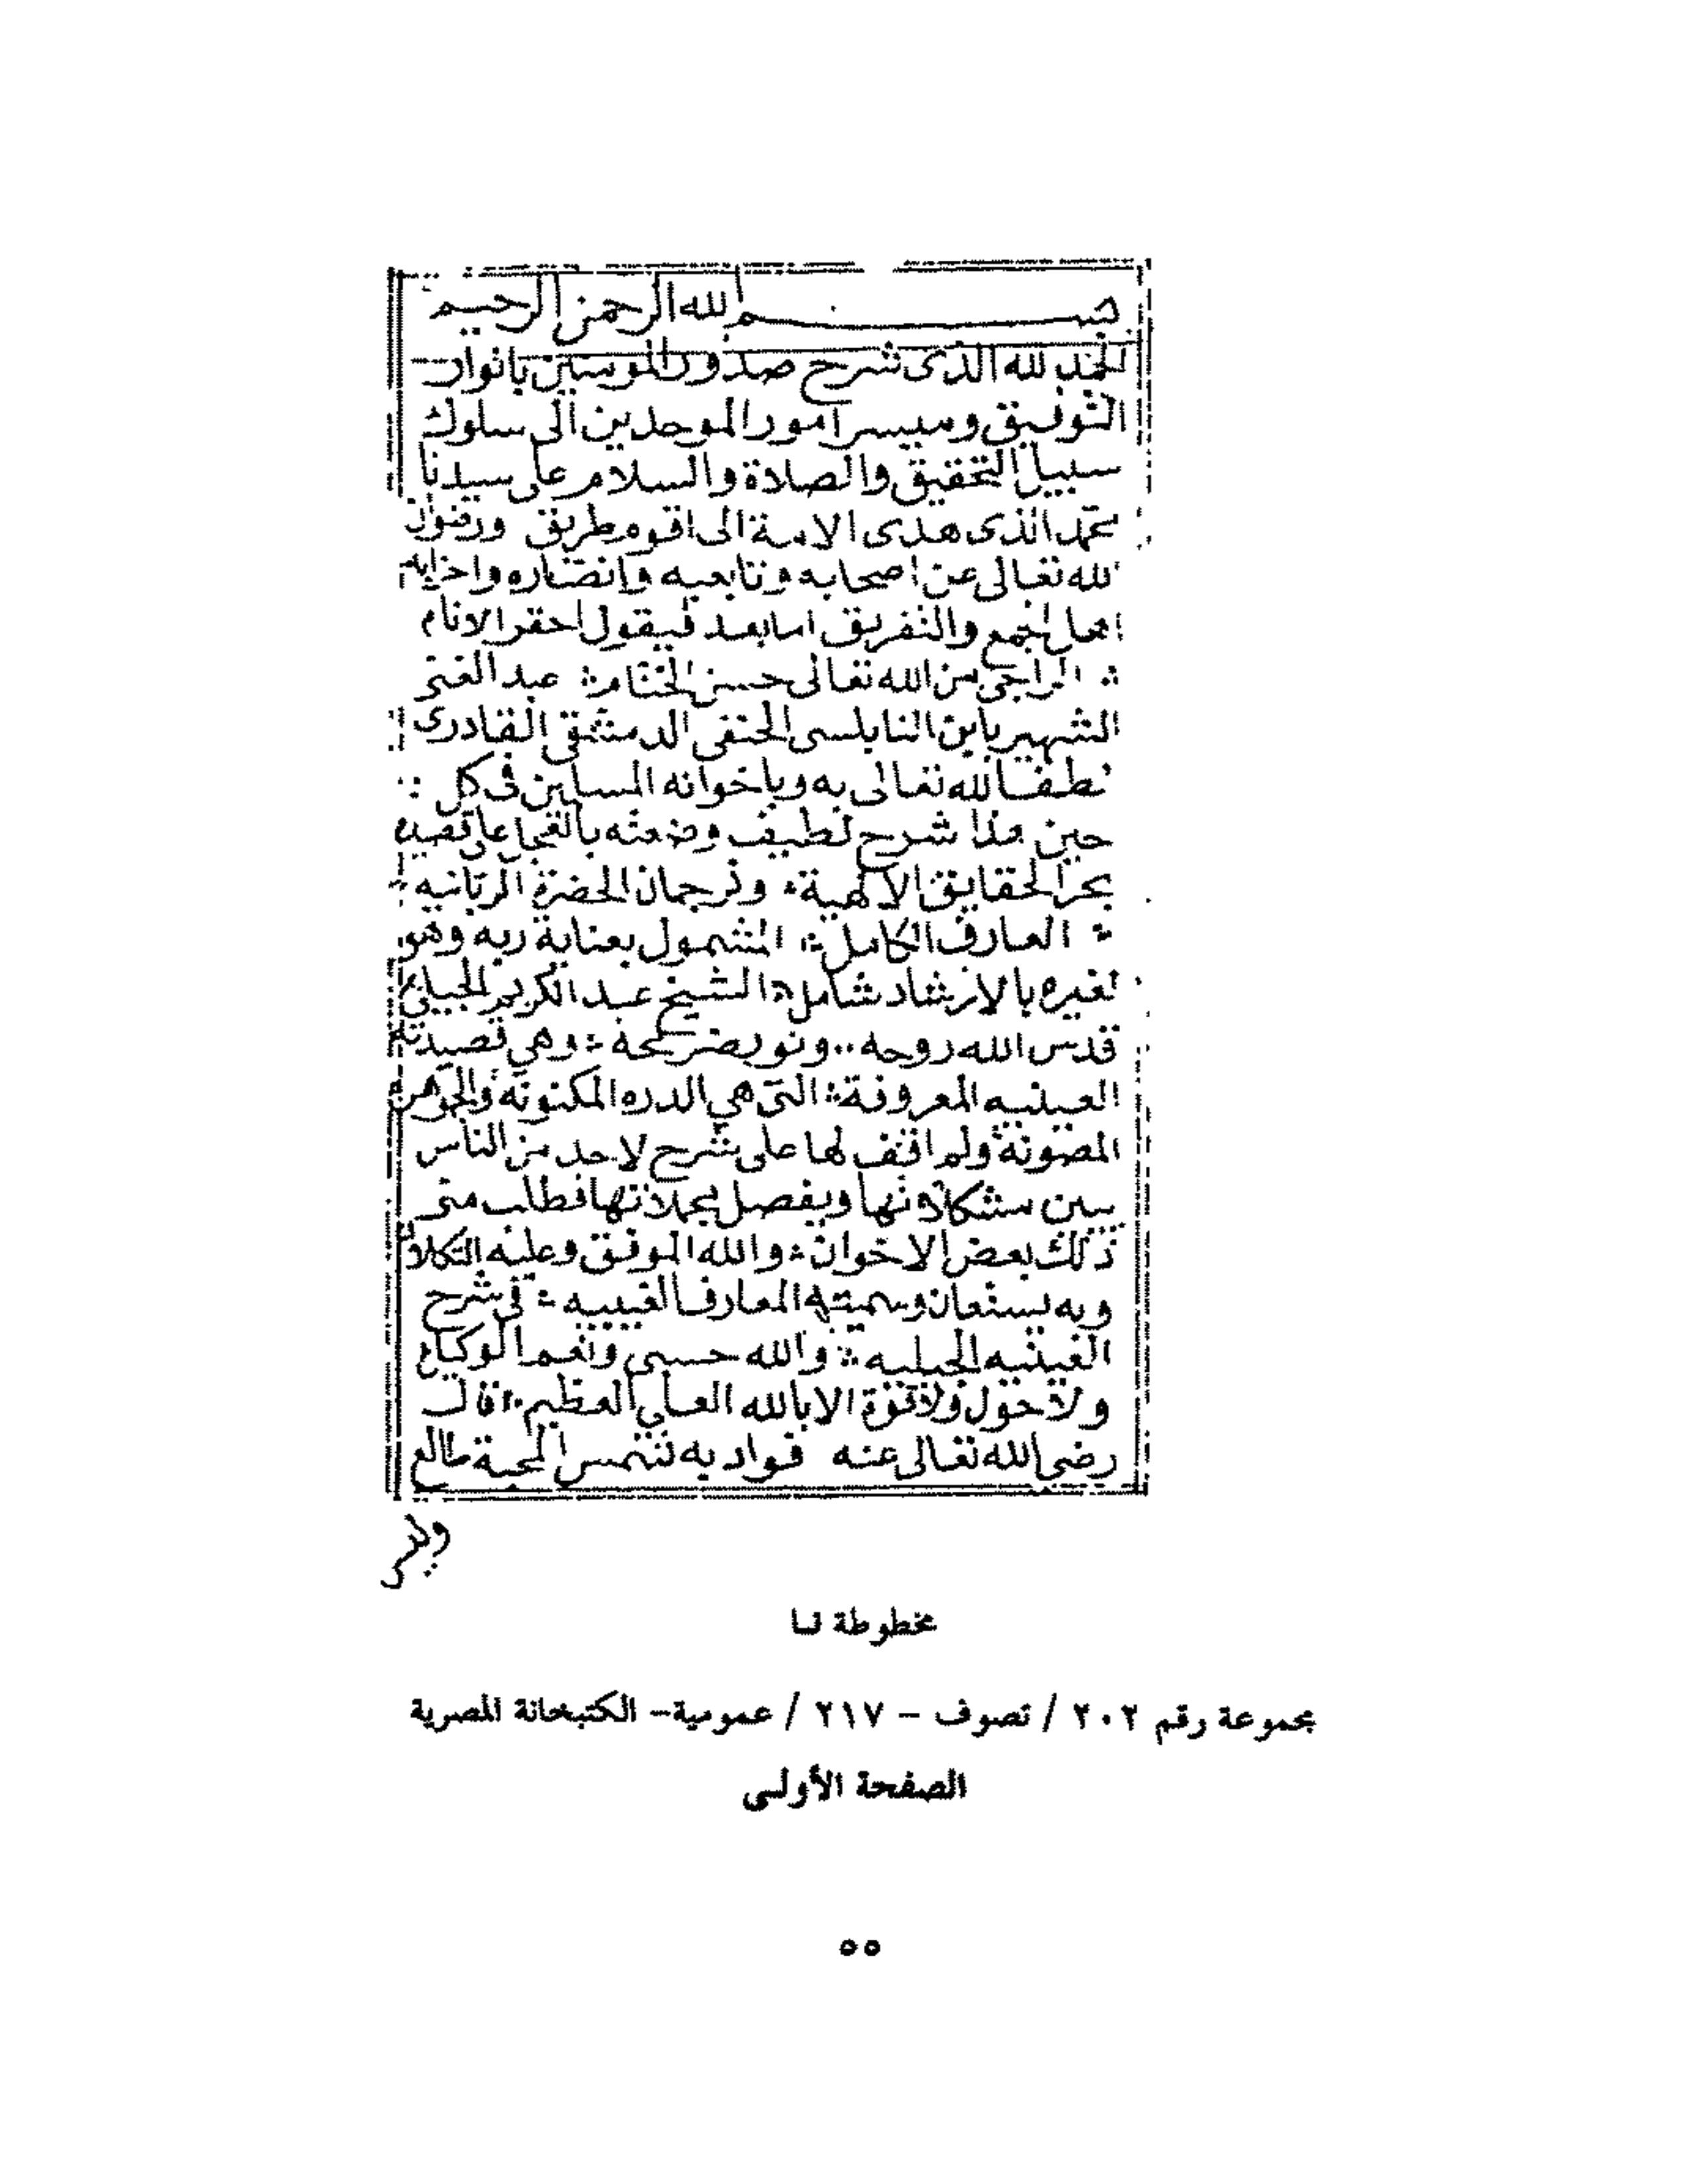 بسم الله الرحمن الرحيم
الحمد لله الذى شرح صدور المومنين بانوار
التوفيق وميسر امور الموحدين الى سلوك
سبيل التحقيق والصلاة والسلام على سيدنا
محمد الذى هدى الامة الى اقوم طريق ورضوان
الله تعالى عن اصحابه وتابعيه وانصاره واحزابه
اهل الجمع والتفريق اما بعد فيقول احقر الانام
الراجى من الله تعالى حسن الختام عبد الغنى
الشهير بابن النابلسى الحنفى الدمشقى القادرى
لطف الله تعالى به وباخوانه المسلمين فى كل
حين هذا شرح لطيف وضعته على قصيدة
بحر الحقايق الالهية وترجمان الحضرة الربانيه
العارف الكامل المشمول بعناية ربه وهو
لغيره بالارشاد شامل الشيخ عبد الكريم الجيلى
قدس الله روحه ونور ضريحه وهي قصيدته
العينيه المعروفة التى هي الدره المكنونة والجوهرة
المصونة ولم اقف لها على شرح لاحد من الناس
يبين مشكلاتها ويفصل مجملاتها فطلب منى
ذلك بعض الاخوان والله الموفق وعليه التكلان
وبه نستعان وسميته المعارف الغيبيه فى شرح
العينيه الجيليه والله حسبى ونعم الوكيل
ولا حول ولا قوة الا بالله العلي العظيم قال
رضى الله تعالى عنه فواد به شمس المحبة طالع
وليس
مخطوطة لـا
مجموعة رقم ٢٠٢ / تصوف – ٢١٧ / عمومية– الكتبخانة المصرية
الصفحة الأولى
٥٥